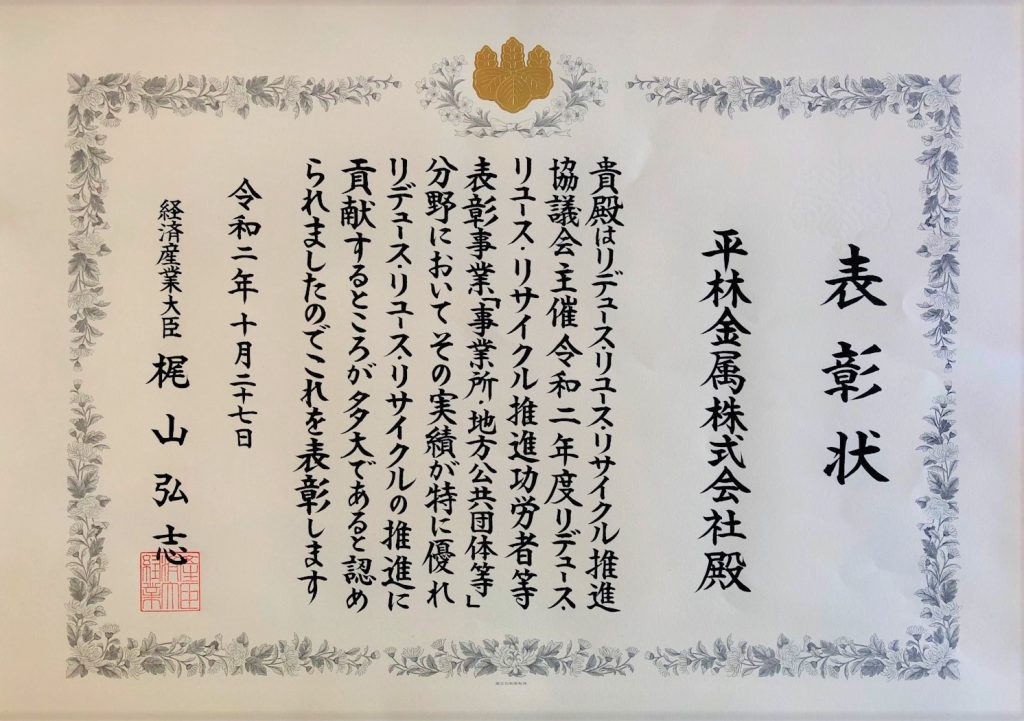 表彰状
平林金属株式会社殿
貴殿はリデュース・リユース・リサイクル推進
協議会主催令和二年度リデュース・
リユース・リサイクル推進功労者等
表彰事業「事業所・地方公共団体等」
分野においてその実績が特に優れ
リデュース・リユース・リサイクルの推進に
貢献するところが多大であると認め
られましたのでこれを表彰します
令和二年十月二十七日
経済産業大臣 梶山弘志